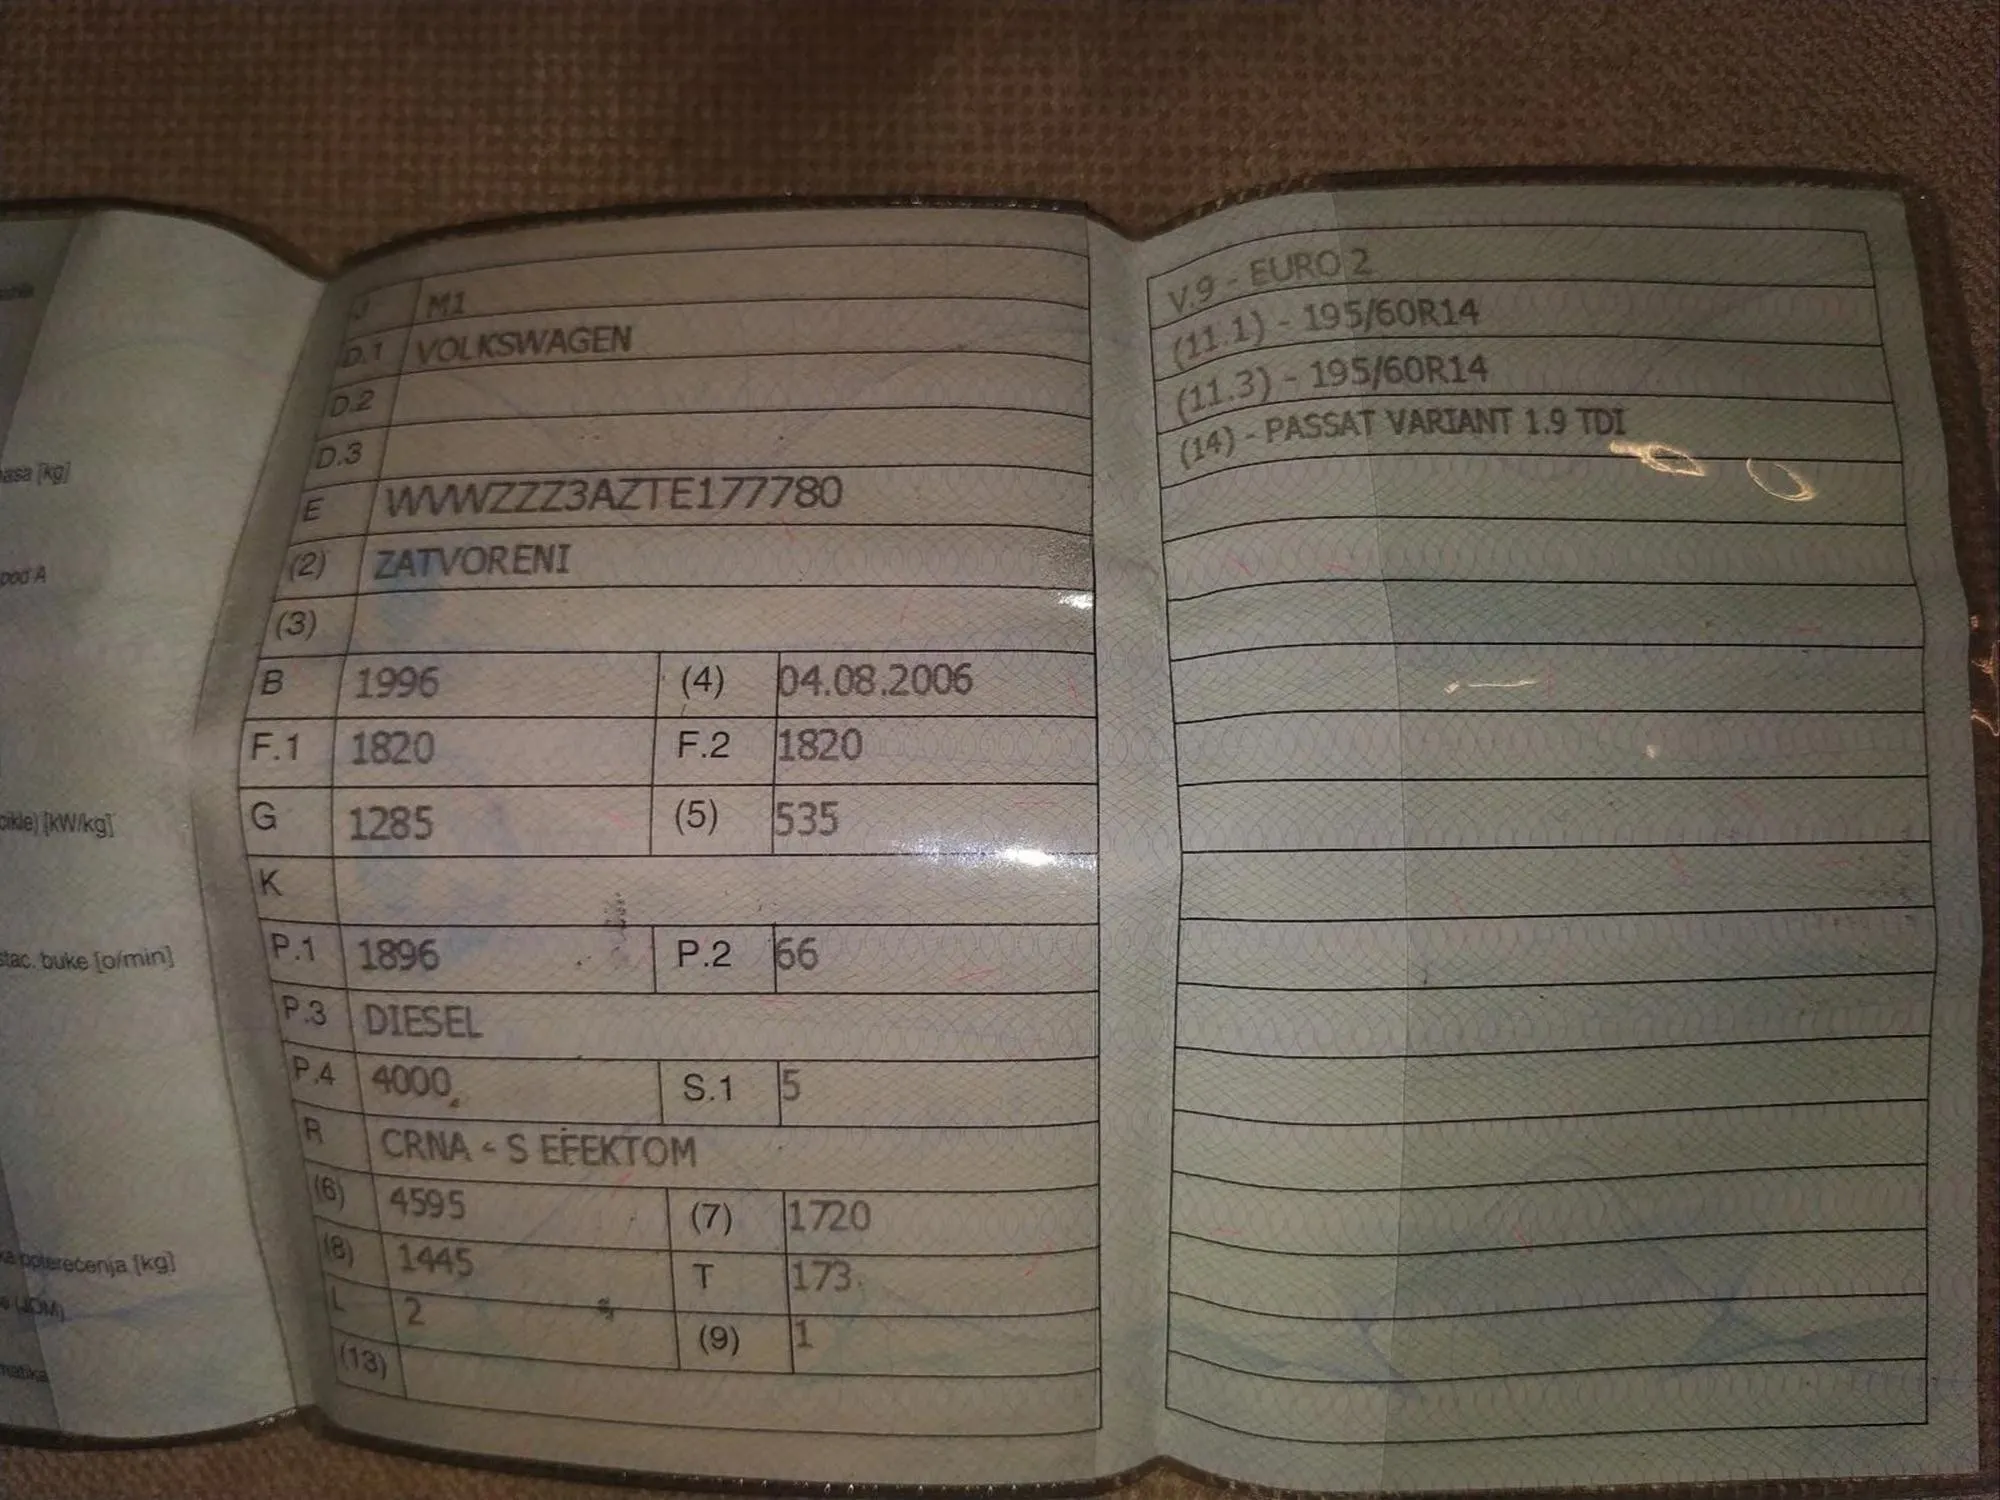 masa [kg]
pod A
cikle) [kW/kg]
stac. buke [o/min]
opterećenja [kg]
(JDM)
J M1
D.1 VOLKSWAGEN
D.2
D.3
E WVWZZZ3AZTE177780
(2) ZATVORENI
(3)
B 1996 (4) 04.08.2006
F.1 1820 F.2 1820
G 1285 (5) 535
K
P.1 1896 P.2 66
P.3 DIESEL
P.4 4000 S.1 5
R CRNA - S EFEKTOM
(6) 4595 (7) 1720
(8) 1445 T 173
L 2 (9) 1
(13)
V.9 - EURO 2
(11.1) - 195/60R14
(11.3) - 195/60R14
(14) - PASSAT VARIANT 1.9 TDI